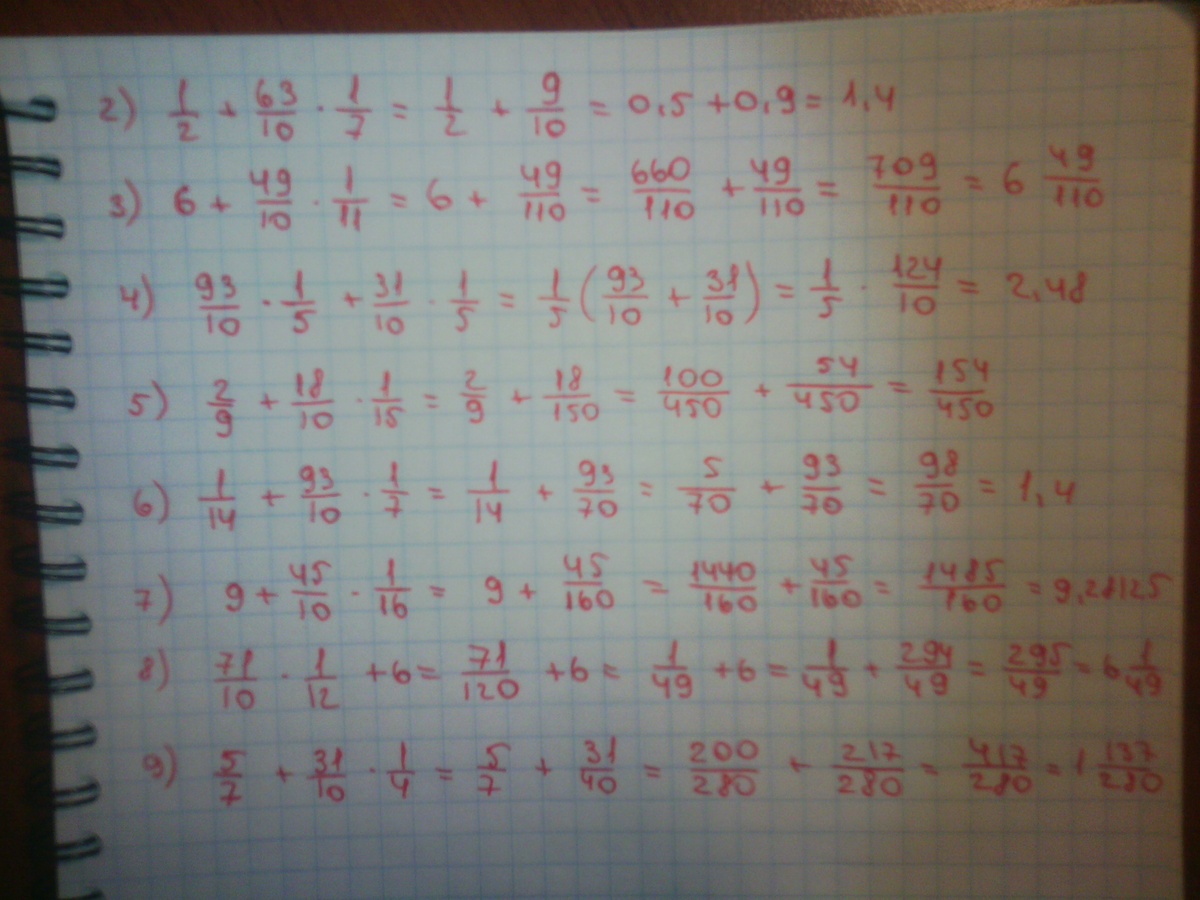 2) 1/2 + 63/10 · 1/7 = 1/2 + 9/10 = 0,5 + 0,9 = 1,4
3) 6 + 49/10 · 1/11 = 6 + 49/110 = 660/110 + 49/110 = 709/110 = 6 49/110
4) 93/10 · 1/5 + 31/10 · 1/5 = 1/5 (93/10 + 31/10) = 1/5 · 124/10 = 2,48
5) 2/9 + 18/10 · 1/15 = 2/9 + 18/150 = 100/450 + 54/450 = 154/450
6) 1/14 + 93/10 · 1/7 = 1/14 + 93/70 = 5/70 + 93/70 = 98/70 = 1,4
7) 9 + 45/10 · 1/16 = 9 + 45/160 = 1440/160 + 45/160 = 1485/160 = 9,28125
8) 71/10 · 1/12 + 6 = 71/120 + 6 = 1/49 + 6 = 1/49 + 294/49 = 295/49 = 6 1/49
9) 5/7 + 31/10 · 1/4 = 5/7 + 31/40 = 200/280 + 217/280 = 417/280 = 1 137/280